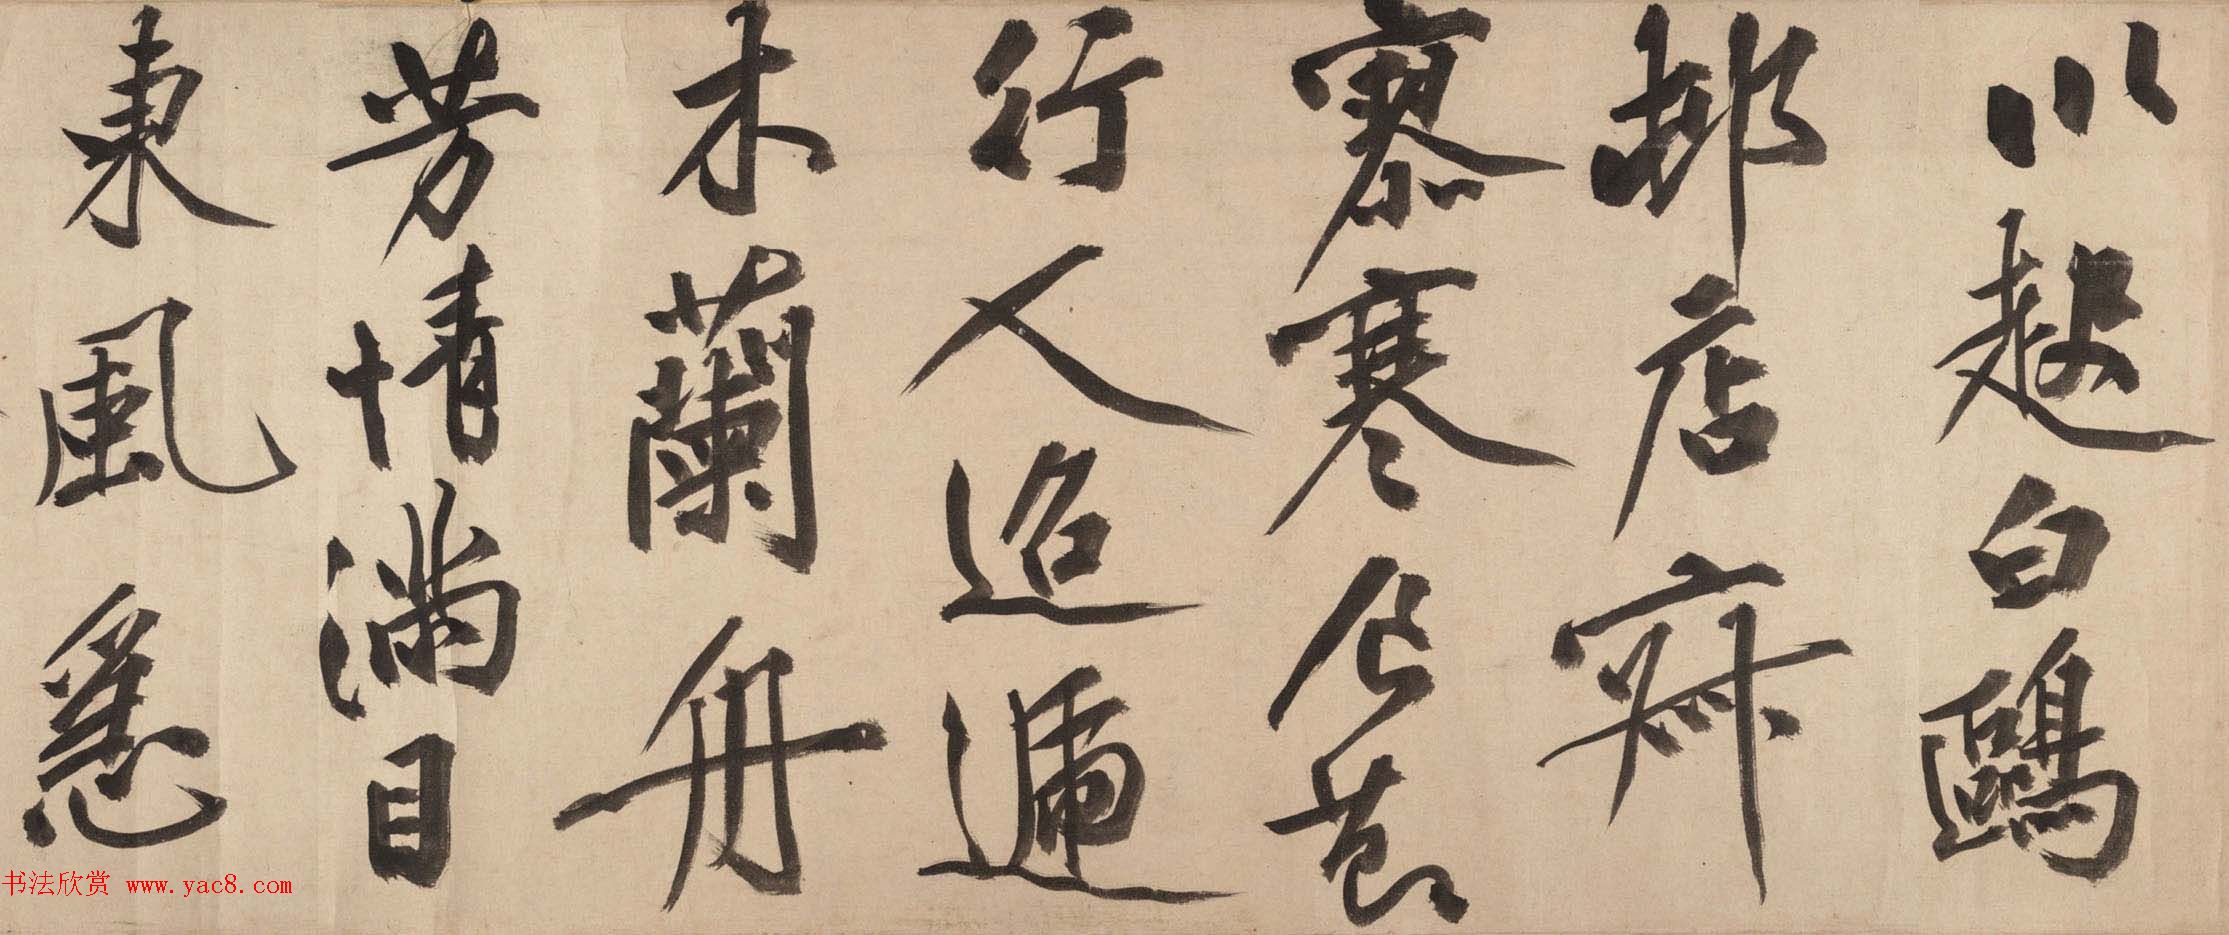 起白鷗
邨店寂
寥寒食
行人迢遞
木蘭舟
芳情滿目
東風急
书法欣赏 www.yac8.com